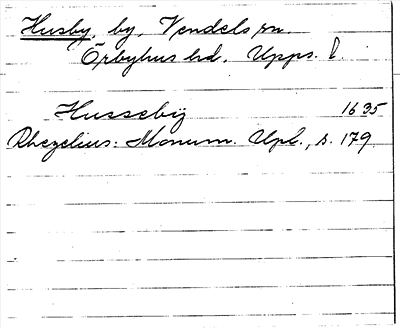 Husby, by, Vendels sn.
Örbyhus hd, Upps. l.
Husseby 1635
Rhezelius: Monum. Upl., s. 179